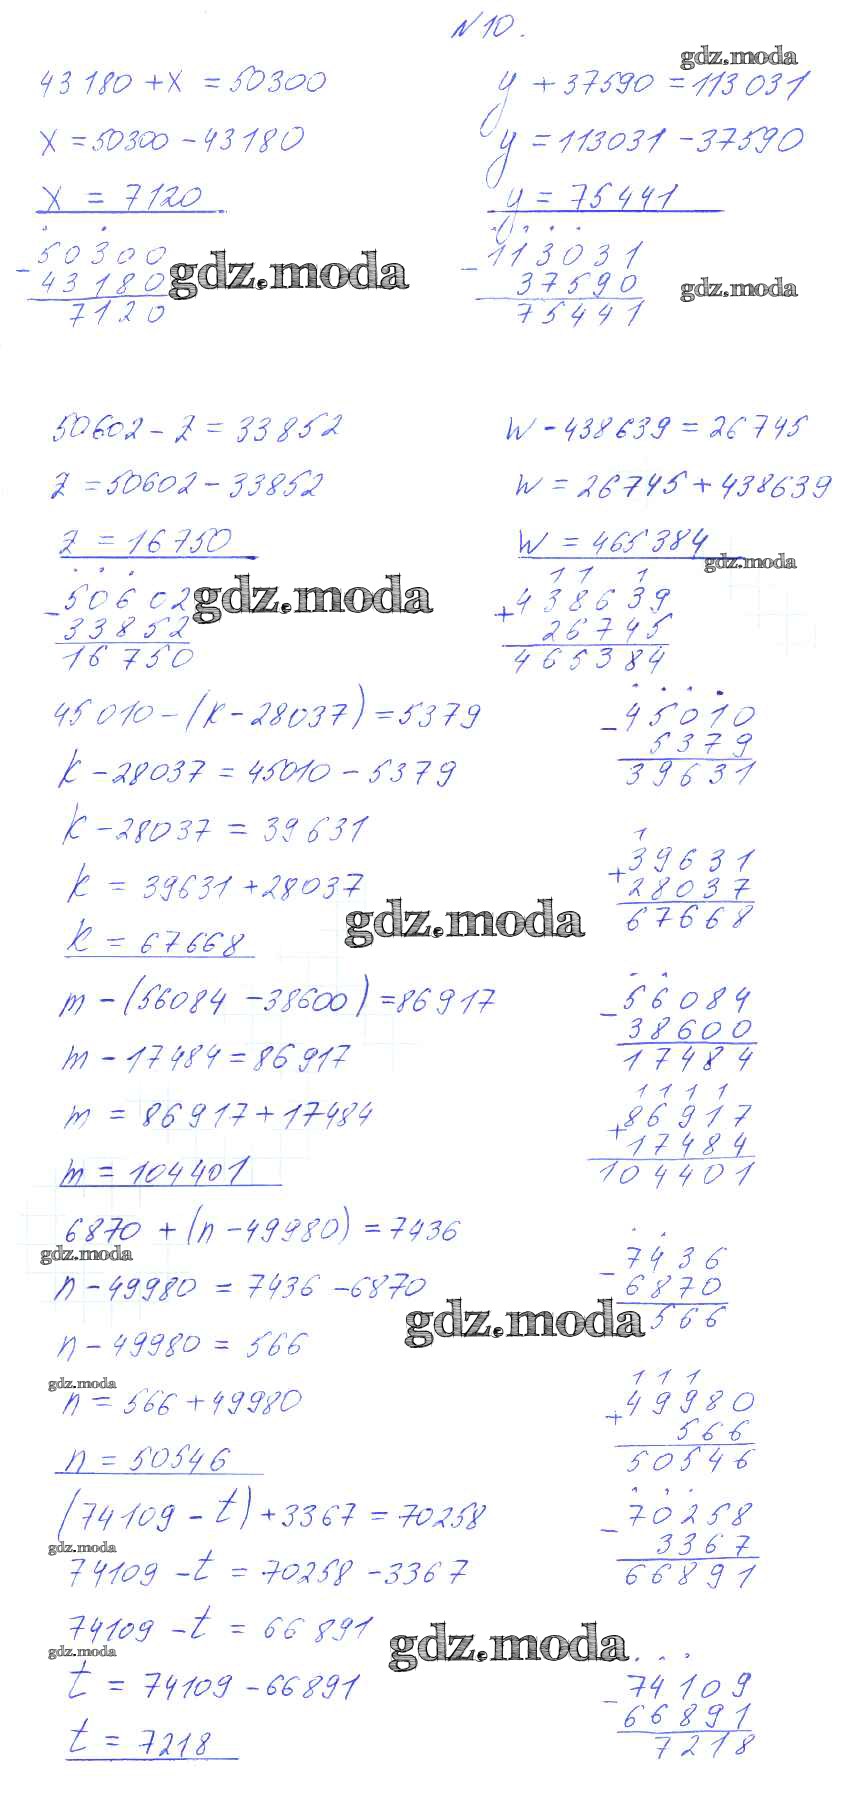 N10.
gdz.moda
43180 + x = 50300
x = 50300 - 43180
x = 7120
50300
- 43180
7120
gdz.moda
y + 37590 = 113031
y = 113031 - 37590
y = 75441
113031
- 37590
75441
gdz.moda
50602 - z = 33852
z = 50602 - 33852
z = 16750
50602
- 33852
16750
gdz.moda
w - 438639 = 26745
w = 26745 + 438639
w = 465384
gdz.moda
11 1
438639
+ 26745
465384
45010 - (k - 28037) = 5379
k - 28037 = 45010 - 5379
k - 28037 = 39631
k = 39631 + 28037
k = 67668
45010
- 5379
39631
1
39631
+ 28037
67668
gdz.moda
m - (56084 - 38600) = 86917
m - 17484 = 86917
m = 86917 + 17484
m = 104401
56084
- 38600
17484
1111
86917
+ 17484
104401
6870 + (n - 49980) = 7436
gdz.moda
n - 49980 = 7436 - 6870
n - 49980 = 566
gdz.moda
n = 566 + 49980
n = 50546
7436
- 6870
566
gdz.moda
111
49980
+ 566
50546
(74109 - t) + 3367 = 70258
gdz.moda
74109 - t = 70258 - 3367
74109 - t = 66891
gdz.moda
t = 74109 - 66891
t = 7218
70258
- 3367
66891
gdz.moda
74109
- 66891
7218